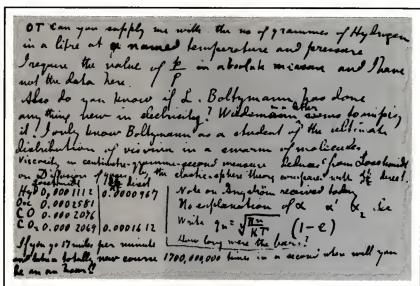 OT Can you supply me with the no of grammes of Hydrogen
in a litre at a named temperature and pressure
I require the value of p/ρ in absolute measure and I have
not the data here.
Also do you know if L. Boltzmann has done
anything new in electricity? Wiedemann in a letter seems to
it. I only know Boltzmann as a student of the ultimate
distribution of vis viva in a swarm of molecules.
Viscosity in centimetre-gramme-second measure deduced from Loschmidt
on Diffusion of gases by the elastic sphere theory compared with direct.
Loschmidt direct
Hyd 0.000 1112 0.0000967
Oxy 0.000 2581
CO 0.000 2076
CO2 0.000 2069 0.0001612
Note on Ångström received today
No explanation of α α' α2 &c
Write
How long were the bars?
If you go 17 miles per minute
and take a totally new course 1700,000,000 times in a second where will you
be in an hour?